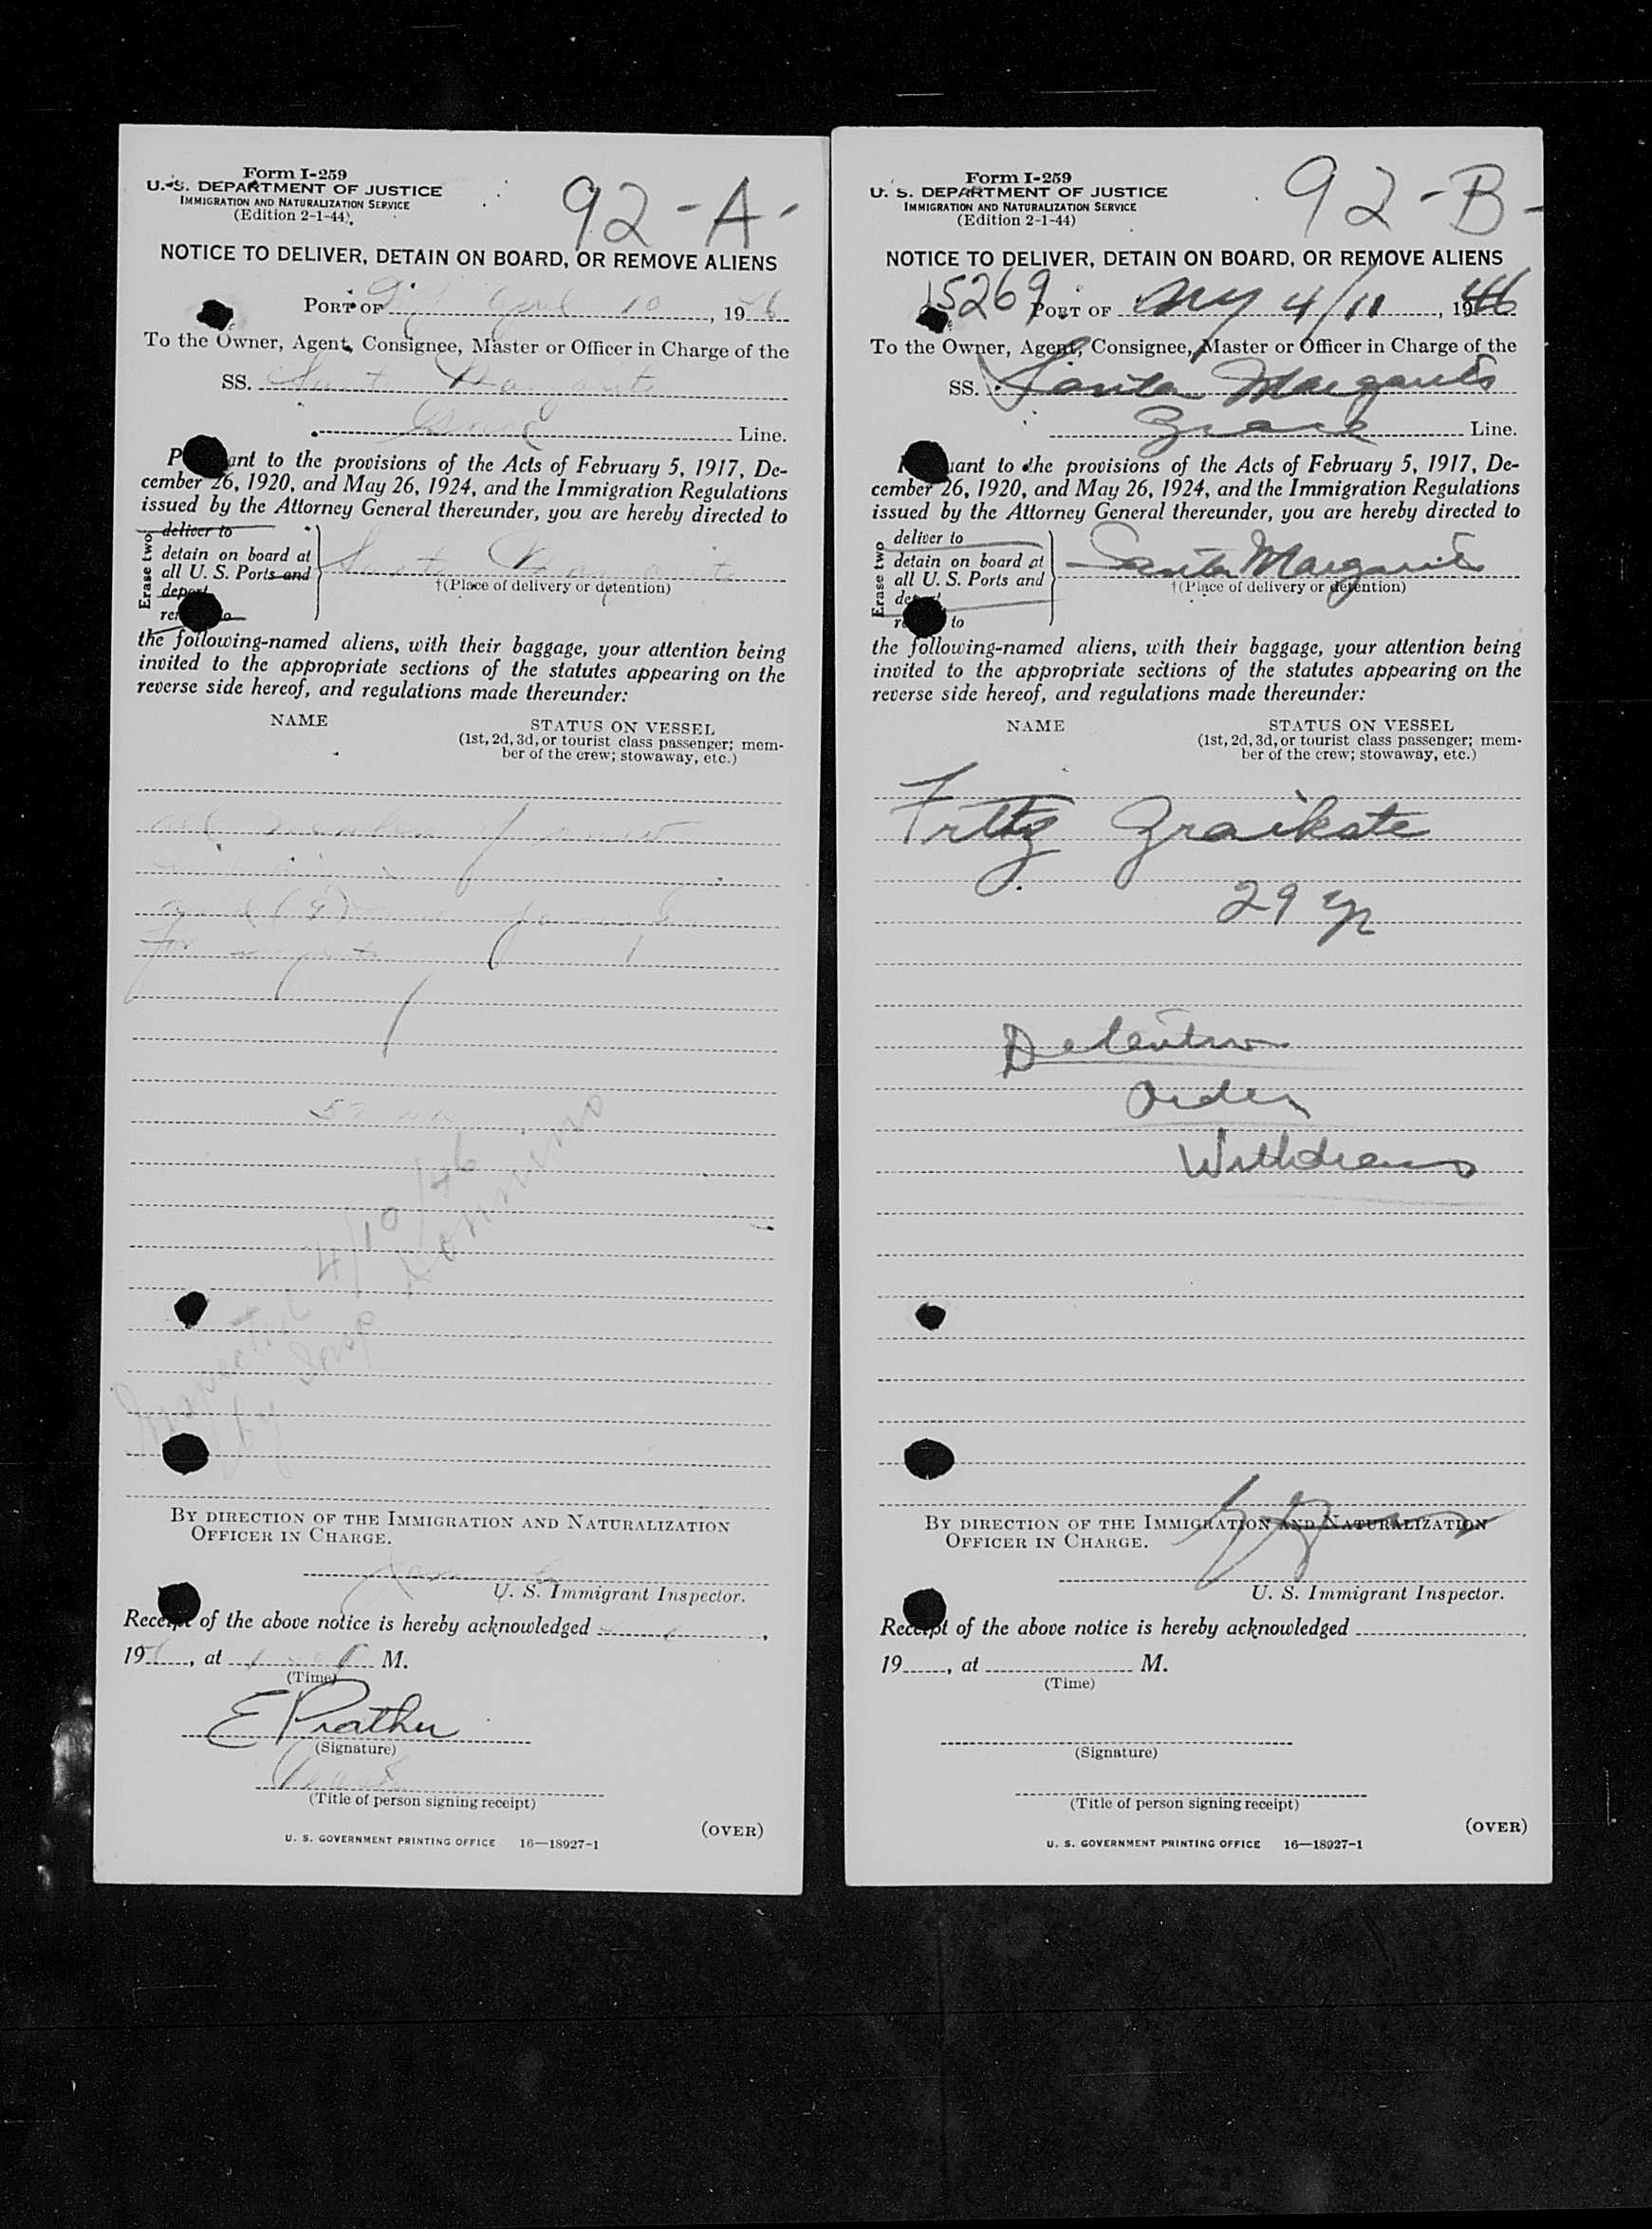 Form I-259
U. S. DEPARTMENT OF JUSTICE
IMMIGRATION AND NATURALIZATION SERVICE
(Edition 2-1-44)
92-A-
NOTICE TO DELIVER, DETAIN ON BOARD, OR REMOVE ALIENS
PORT OF 10, 1946
To the Owner, Agent, Consignee, Master or Officer in Charge of the
SS. Santa Margarita
Grace Line.
ant to the provisions of the Acts of February 5, 1917, De-
cember 26, 1920, and May 26, 1924, and the Immigration Regulations
issued by the Attorney General thereunder, you are hereby directed to
Erase two
deliver to
detain on board at
all U. S. Ports and
deport
Santa Margarita
†(Place of delivery or detention)
the following-named aliens, with their baggage, your attention being
invited to the appropriate sections of the statutes appearing on the
reverse side hereof, and regulations made thereunder:
NAME
STATUS ON VESSEL
(1st, 2d, 3d, or tourist class passenger; mem-
ber of the crew; stowaway, etc.)
all members of crew
for
4/10/46
by
BY DIRECTION OF THE IMMIGRATION AND NATURALIZATION
OFFICER IN CHARGE.
U. S. Immigrant Inspector.
Receipt of the above notice is hereby acknowledged
19, at M.
(Time)
E Prather
(Signature)
(Title of person signing receipt)
(OVER)
U. S. GOVERNMENT PRINTING OFFICE 16—18927-1
Form I-259
U. S. DEPARTMENT OF JUSTICE
IMMIGRATION AND NATURALIZATION SERVICE
(Edition 2-1-44)
92-B-
NOTICE TO DELIVER, DETAIN ON BOARD, OR REMOVE ALIENS
15269 PORT OF NY 4/11, 1946
To the Owner, Agent, Consignee, Master or Officer in Charge of the
SS. Santa Margarita
Grace Line.
uant to the provisions of the Acts of February 5, 1917, De-
cember 26, 1920, and May 26, 1924, and the Immigration Regulations
issued by the Attorney General thereunder, you are hereby directed to
Erase two
deliver to
detain on board at
all U. S. Ports and
to
Santa Margarita
†(Place of delivery or detention)
the following-named aliens, with their baggage, your attention being
invited to the appropriate sections of the statutes appearing on the
reverse side hereof, and regulations made thereunder:
NAME
STATUS ON VESSEL
(1st, 2d, 3d, or tourist class passenger; mem-
ber of the crew; stowaway, etc.)
Frttz Graikste
29 yr
Detention
Order
Withdrawn
BY DIRECTION OF THE IMMIGRATION AND NATURALIZATION
OFFICER IN CHARGE.
U. S. Immigrant Inspector.
Receipt of the above notice is hereby acknowledged
19, at M.
(Time)
(Signature)
(Title of person signing receipt)
(OVER)
U. S. GOVERNMENT PRINTING OFFICE 16—18927-1